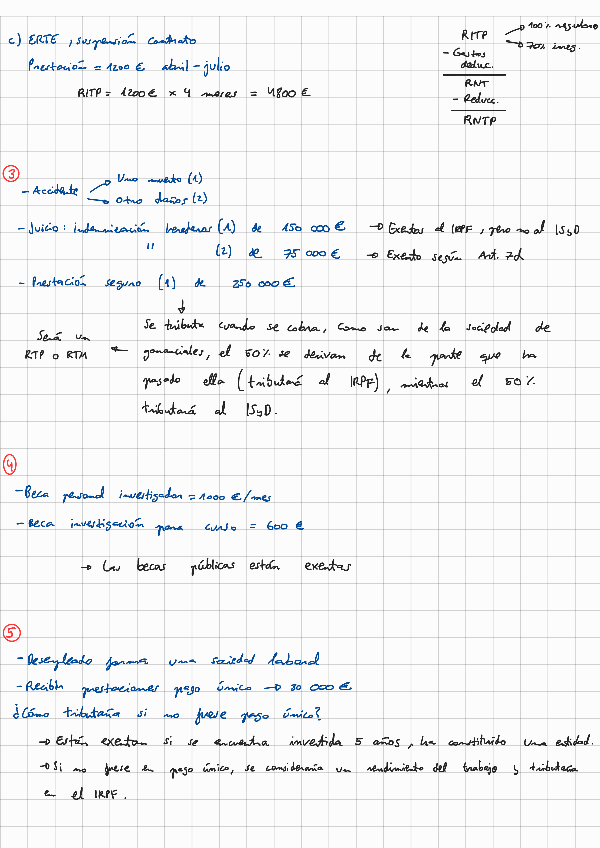 c) ERTE, suspensión contrato
Prestación = 1200 € abril - julio
RITP = 1200 € × 4 meses = 4800 €
RITP → 100% regulares
→ 70% irreg.
- Gastos
deduc.
RNT
- Reducc.
RNTP
3
- Accidente → Uno muerto (1)
→ Otro daños (2)
- Juicio: indemnización herederos (1) de 150 000 € → Exentos al IRPF, pero no al ISyD
" (2) de 75 000 € → Exento según Art. 7d
- Prestación seguro (1) de 250 000 €
↓
Se tributa cuando se cobra, como son de la sociedad de
gananciales, el 50% se derivan de la parte que ha
pagado ella (tributará al IRPF), mientras el 50%
tributará al ISyD.
Será un
RTP o RTM ←
4
- Beca personal investigador = 1000 €/mes
- Beca investigación para curso = 600 €
→ Las becas públicas están exentas
5
- Desempleado forma una sociedad laboral
- Recibir prestaciones pago único → 30 000 €
¿Cómo tributaría si no fuese pago único?
→ Están exentas si se encuentra invertida 5 años, ha constituido una entidad.
→ Si no fuese en pago único, se consideraría un rendimiento del trabajo y tributaría
en el IRPF.